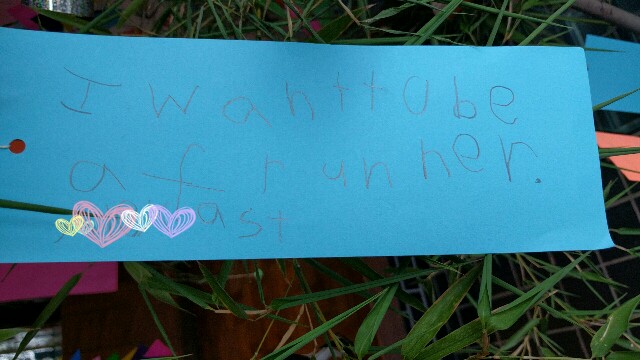 I want tO be
a f runner.
ast